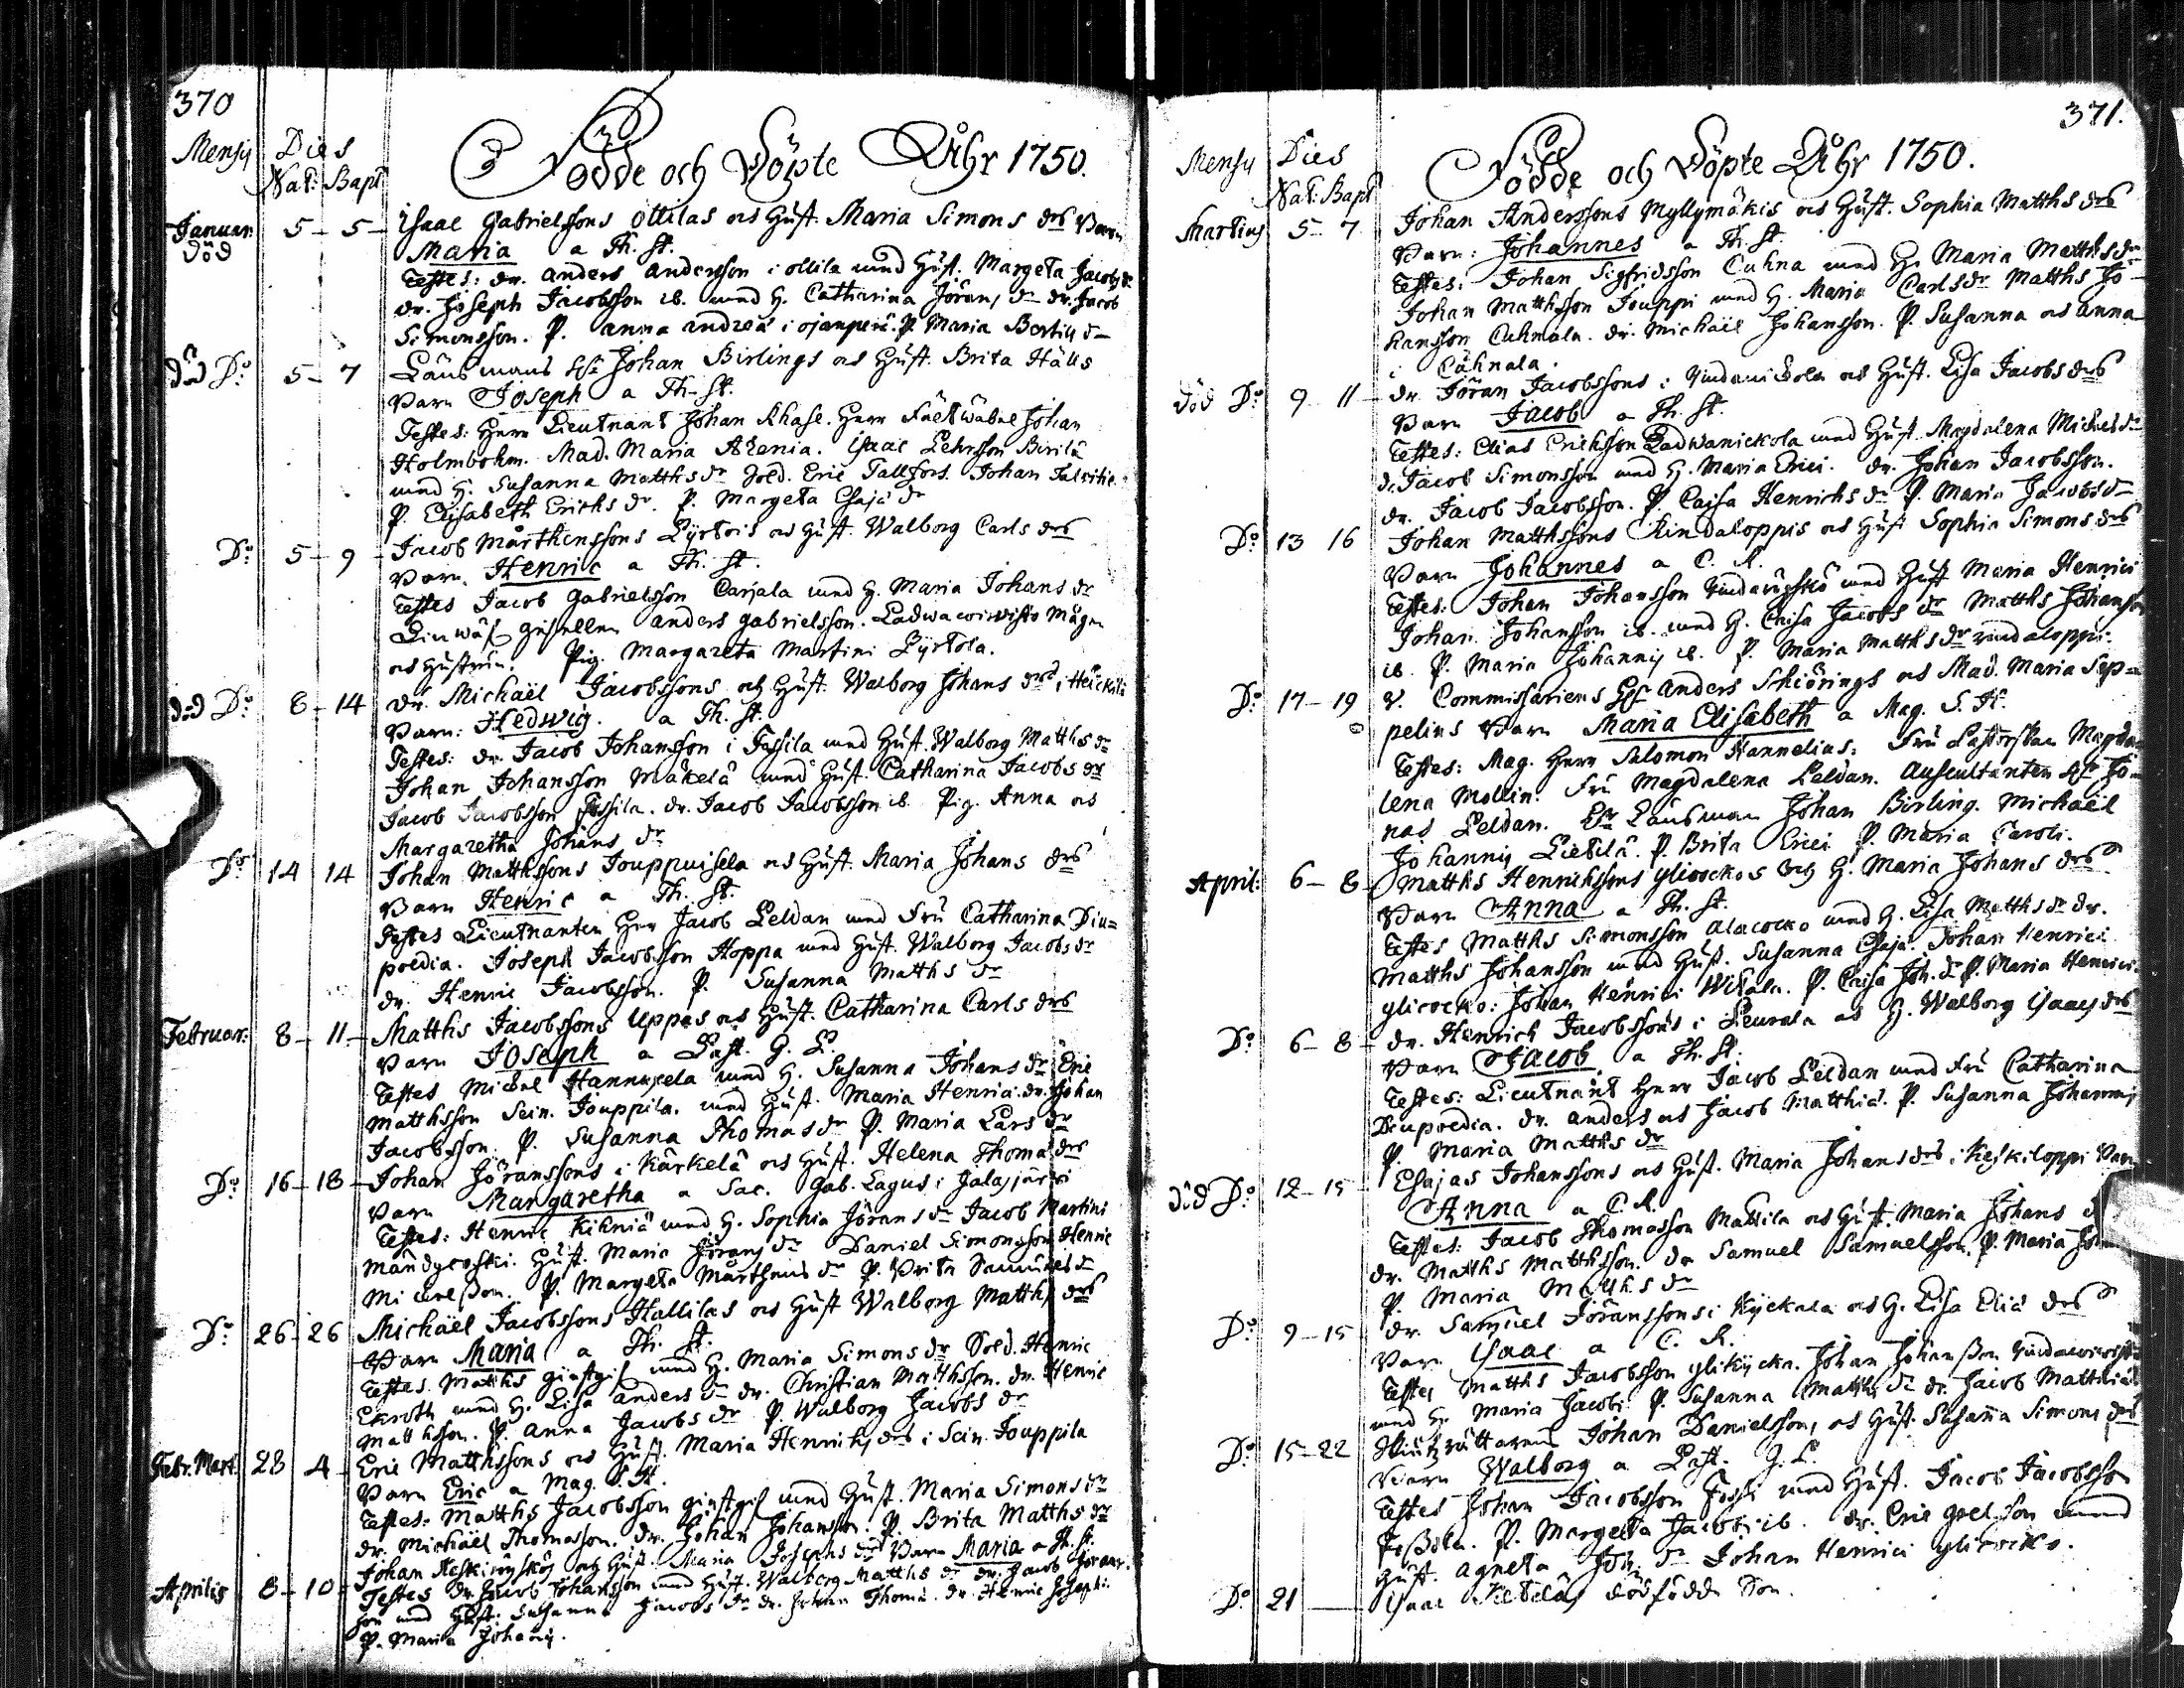 370
Mensis Dies
Nat: Bapt
Födde och Döpte Åhr 1750.
Januar. 5 - 5 - Isaac Gabrielssons Ollilas och Hust. Maria Simons drs Barn
död Maria a Th. St.
Testes: dr. Anders Andersson i Ollila med Hust. Margeta Jacobs dr
dr. Joseph Jacobsson ib. med H. Catharina Jörans dr dr. Jacob
Simonsson. P. Anna Andreæ i Ojanperä. P. Maria Bertils dr
död Do 5 - 7 Länsmans Hr Johan Birlings och Hust. Brita Hälls
Barn Joseph a Th. St.
Testes: Herr Lieutnant Johan Khase. Herr Fältwäbel Johan
Holmbohm. Mad. Maria Alenia. Isaac Lehrsson Birilä
med H. Susanna Matths dr Sold. Eric Tallfors. Johan Talvitie
P. Elisabeth Erichs dr. P. Margeta Esajæ dr
Do 5 - 9 - Jacob Mårthenssons Pyrtois och Hust. Walborg Carls drs
Barn. Henric a Th. St.
Testes Jacob Gabrielsson Carjala med H. Maria Johans dr
gesellen Anders Gabrielsson. Mågen
och Hustrun. Pig. Margareta Martini Pyrtola.
död Do 8 - 14 dr. Michaël Jacobssons och Hust. Walborg Johans drs i Heickilä
Barn: Hedwig. a Th. St.
Testes: dr. Jacob Johansson i Fossila med Hust. Walborg Matths dr
Johan Johansson Mäkelä med Hust. Catharina Jacobs dr
Jacob Jacobsson Fossila. dr. Jacob Jacobsson ib. Pig. Anna och
Margaretha Johans dr
Do 14 14 Johan Matthssons Jouppuisela och Hust. Maria Johans drs
Barn Henric a Th. St.
Testes Lieutnanten Herr Jacob Peldan med Fru Catharina Diu=
poedia. Joseph Jacobsson Hoppa med Hust. Walborg Jacobs dr
dr. Henric Jacobsson. P. Susanna Matths dr
Februar: 8 - 11 - Matths Jacobssons Uppas och Hust. Catharina Carls drs
Barn Joseph a Past. G. L.
Testes Michel Hannuxela med H. Susanna Johans dr Eric
Matthsson Sein. Jouppila. med Hust. Maria Henrici. dr. Johan
Jacobsson. P. Susanna Thomas dr P. Maria Lars dr
Do 16 - 18 - Johan Jöranssons i Kärkelä och Hust. Helena Thoma drs
Barn Margaretha a Sac. Gab. Lagus i Jalasjärvi
Testes: Henric Kihniä med H. Sophia Jörans dr Jacob Martini
Mändycoski. Hust. Maria Jörans dr Daniel Simonsson Henric
Michelsson. P. Margeta Mårthens dr P. Brita Samuels dr
Do 26 - 26 Michaël Jacobssons Hallilas och Hust Walborg Matths drs
Barn Maria a Th. St.
Testes. Matths giästgif med H. Maria Simons dr Sold. Henric
Ekroth med H. Lisa Anders dr dr. Christian Matthsson. dr. Henric
Matthsson. P. Anna Jacobs dr P. Walborg Jacobs dr
Febr. Mart. 28 4 - Eric Matthssons och Hust. Maria Henrichs drs i Sein. Jouppila
Barn Eric a Mag. S. H.
Testes: Matths Jacobsson giästgif med Hust. Maria Simons dr
dr. Michaël Thomasson. dr. Johan Johansson. P. Brita Matths dr
Johan och Hust. Maria Josephs drs Barn Maria a Th. St.
Aprilis 8 - 10 - Testes dr Jacob Johansson med Hust. Walborg Matths dr dr. Jacob Jörans-
son med Hust. Susanna Jacobs dr dr. Johan Thomæ. dr. Henric Josephi.
P. Maria Johannis.
371.
Mensis Dies
Nat: Bapt
Födde och Döpte Åhr 1750.
Martius 5 - 7 Johan Anderssons Myllymäkis och Hust. Sophia Matths drs
Barn: Johannes a Th. St.
Testes: Johan Sigfridsson Cuhna med H. Maria Matths dr
Johan Matthsson Jouppi med H. Maria Carls dr Matths Jo-
hansson Cuhmala. dr. Michaël Johansson. P. Susanna och Anna
i Cuhnala.
död Do 9 - 11 - dr. Jöran Jacobssons i och Hust. Lisa Jacobs drs
Barn Jacob a Th. St.
Testes: Elias Erichsson med Hust. Magdalena Michels dr
d. Jacob Simonsson med H. Maria Erici. dr. Johan Jacobsson.
dr. Jacob Jacobsson. P. Caisa Henrichs dr P. Maria Jacobs dr
Do 13 16 Johan Matthssons Rindaloppis och Hust Sophia Simons drs
Barn Johannes a C. R.
Testes. Johan Johansson med Hust Maria Henrici
Johan Johansson ib. med H. Caisa Jacobs dr Matths Johansson
ib. P. Maria Johannis ib. P. Maria Matths dr rindaloppi.
Do 17 - 19 V. Commissariens Hr Anders Schiörings och Mad. Maria Sep=
pelius Barn Maria Elisabeth a Mag. S. H.
Testes: Mag. Herr Salomon Hannelius. Fru Pastorskan Magda
lena Mollin. Fru Magdalena Peldan. Auscultanten Hr Jo-
nas Peldan. Hr Länsman Johan Birling. Michaël
Johannis Lietilä. P. Brita Erici P. Maria Caroli.
April: 6 - 8 - Matths Henrichssons Ylicockos och H. Maria Johans drs
Barn Anna a Th. St.
Testes Matths Simonsson Alacocko med H. Lisa Matths dr dr.
Matths Johansson med Hust. Susanna Esajæ. Johan Henrici
Ylicocko: Johan Henrici P. Caisa Joh. dr P. Maria Henrici.
Do 6 - 8 - dr. Henrich Jacobssons i Leurala och H. Walborg Isaacs drs
Barn Jacob a Th. St.
Testes: Lieutnant Herr Jacob Peldan med Fru Catharina
Diupoedia. dr. Anders och Jacob Matthiæ. P. Susanna Johannis
P. Maria Matths dr
död Do 12 - 15 - Esajas Johanssons och Hust. Maria Johans drs i Keskiloppi Barn
Anna a C. R.
Testes: Jacob Thomasson Mattila och Hust. Maria Johans
dr. Matths Matthsson. dr Samuel Samuelsson. P. Maria
P. Maria Matths dr
Do 9 - 15 - dr. Samuel Jöranssons i Kyckala och H. Lisa Eliæ drs
Barn Isaac a C. R.
Testes Matths Jacobsson Ylikycka. Johan Johansson
med H. Maria Jacobi P. Susanna Matths dr dr. Jacob Matthiæ
Do 15 - 22 Johan Danielssons, och Hust. Susanna Simons drs
Barn Walborg a Past. G. L.
Testes Johan Jacobsson Fossi med Hust. Jacob Jacobsson
Fossila. P. Margeta Jacobi ib. dr. Eric med
Hust. Agneta Joh. dr Johan Henrici Ylicocko.
Do 21 — Isaac dödfödde Son.